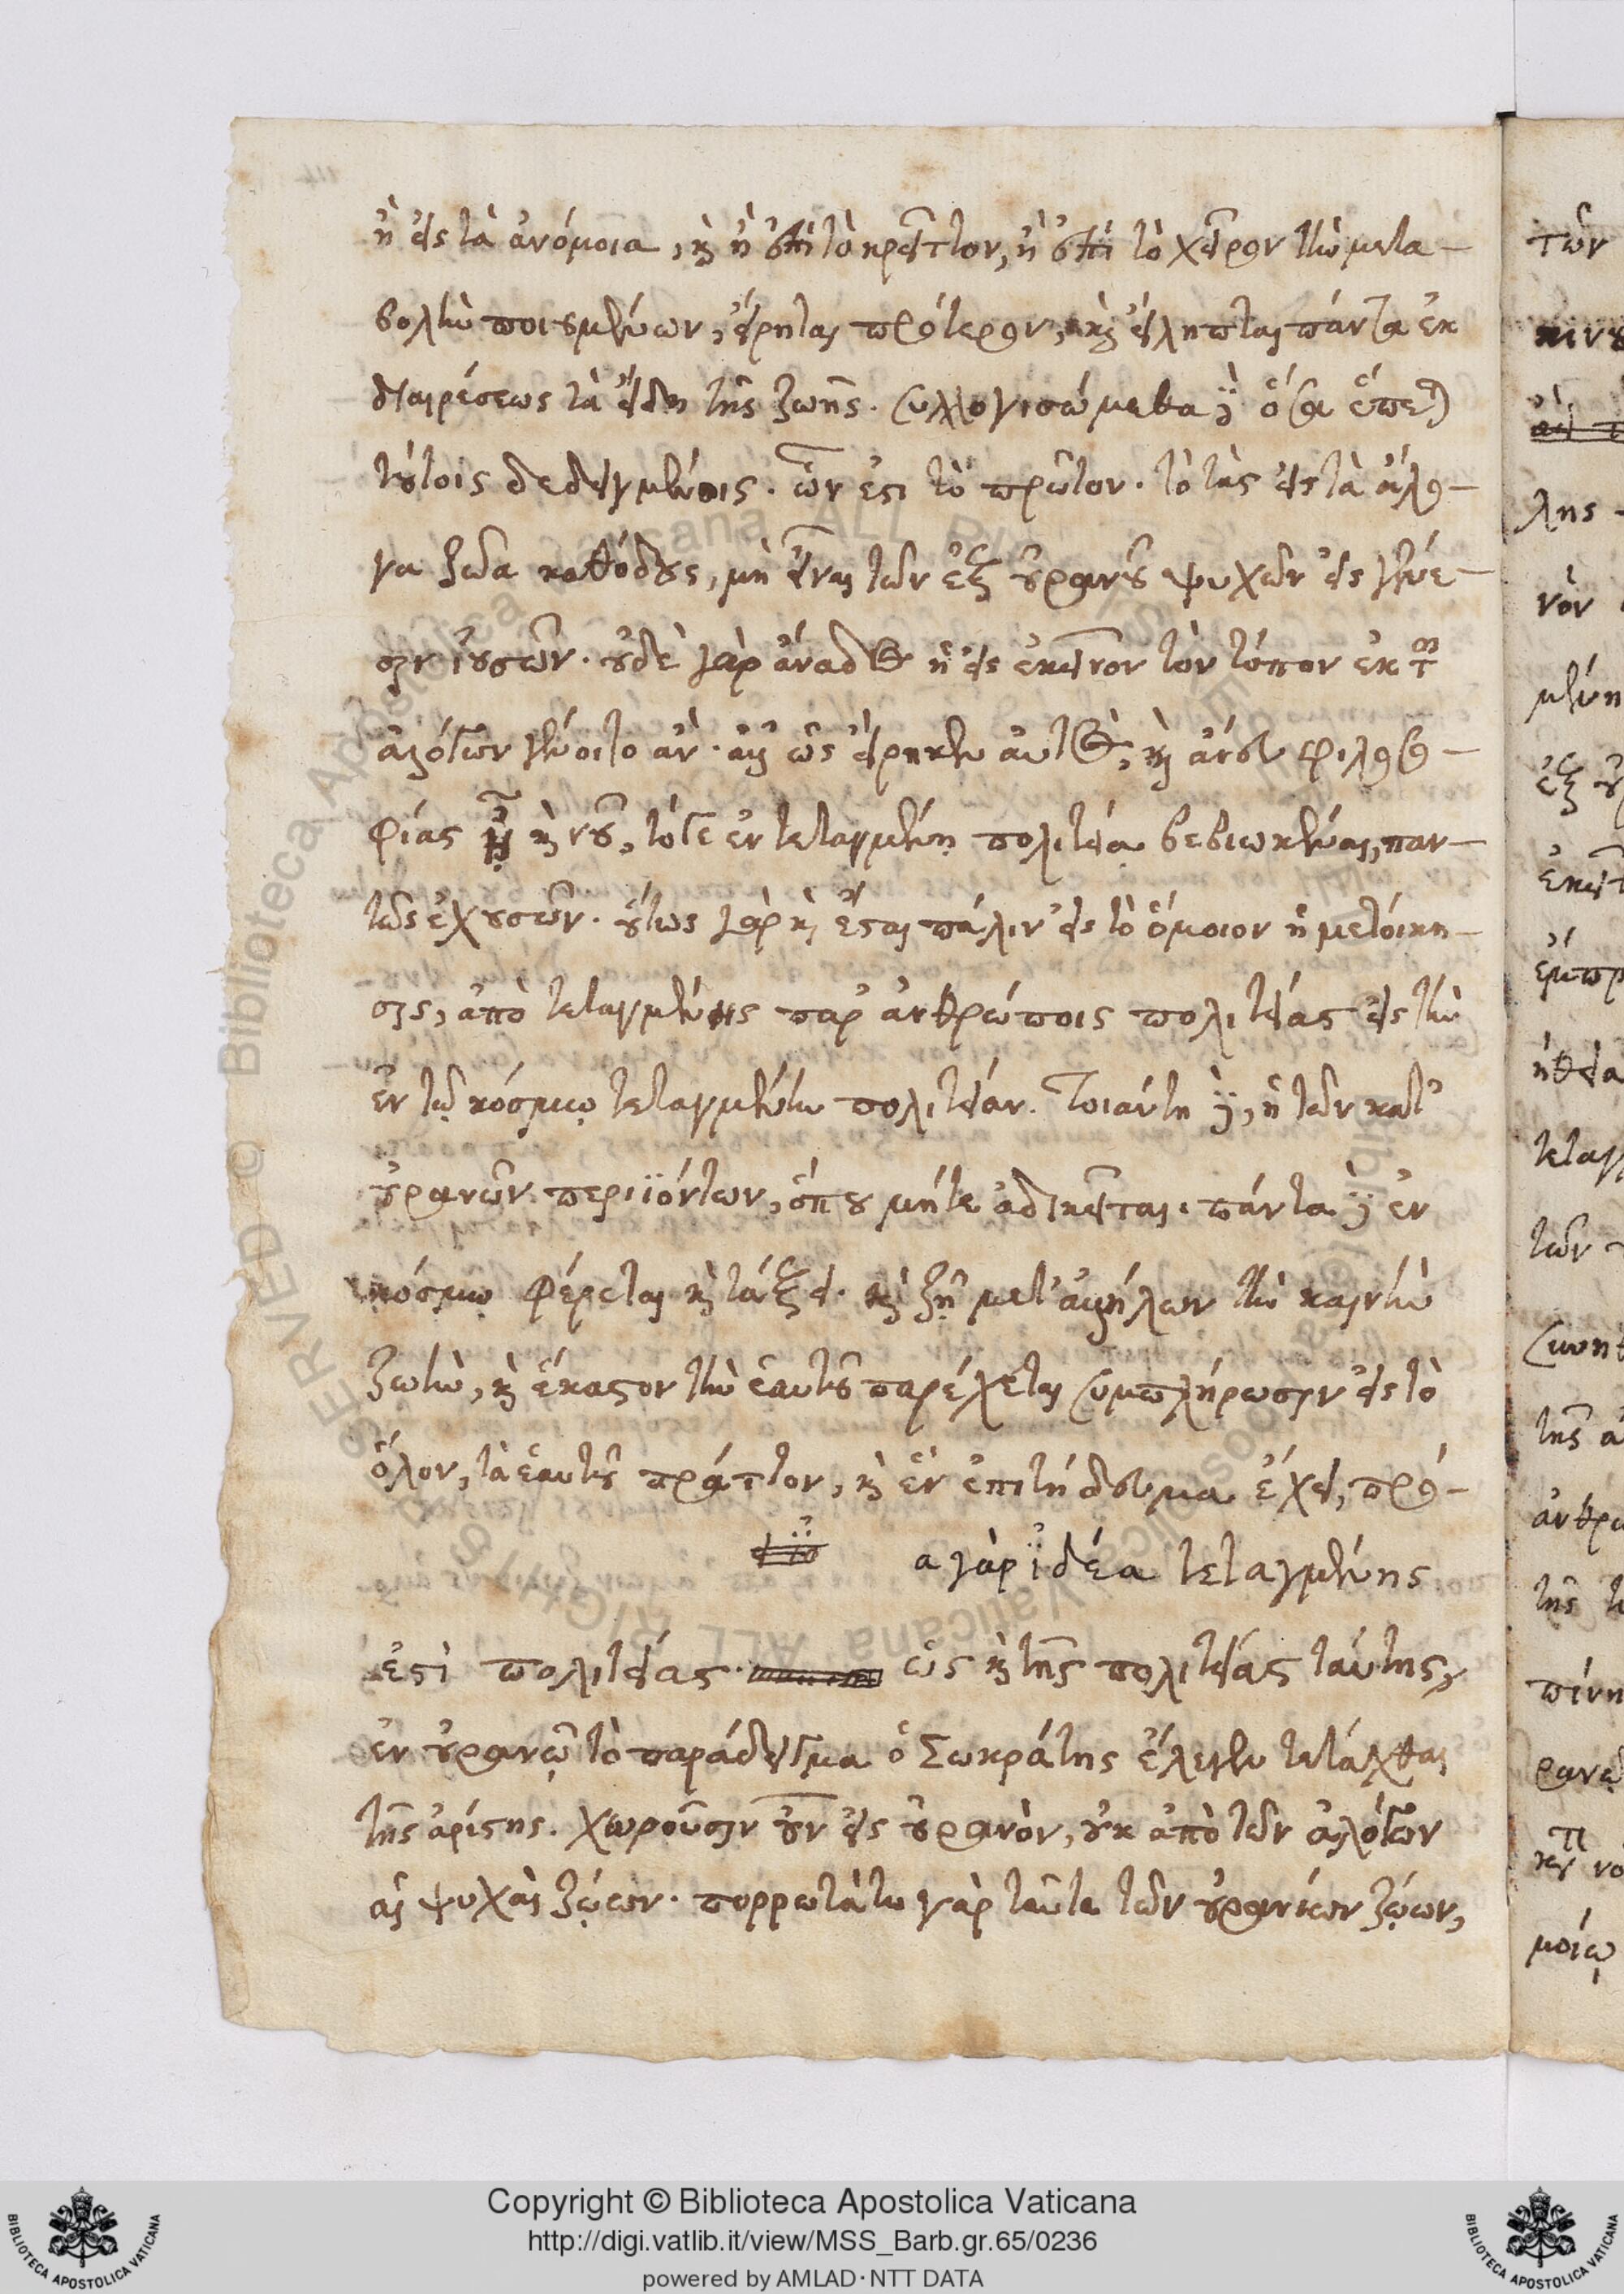 ἢ εἰς τὰ ἀνόμοια, καὶ ἢ ἐπὶ τὸ κρεῖττον, ἢ ἐπὶ τὸ χεῖρον τὴν μετα-
βολὴν ποιουμένων, εἴρηται πρότερον, καὶ εἴληπται πάντα ἐκ
διαιρέσεως τὰ εἴδη τῆς ζωῆς. συλλογισώμεθα δὲ ὅσα ἕπεται
τούτοις δεδειγμένοις. ὧν ἐστι τὸ πρῶτον. τὸ τὰς εἰς τὰ ἄλο-
γα ζῶα καθόδους, μὴ εἶναι τῶν ἐξ οὐρανοῦ ψυχῶν εἰς γένε-
σιν ἰουσῶν. οὐδὲ γὰρ ἄνοδος ἡ εἰς ἐκεῖνον τὸν τόπον ἐκ τῶν
ἀλόγων γένοιτο ἄν. ἀλλ' ὡς εἴρηκεν αὐτὸς, καὶ ἄνευ φιλοσο-
φίας καὶ νοῦ, τότε ἐν τεταγμένῃ πολιτείᾳ βεβιωκέναι, παν-
τῶς ἐχουσῶν. οὕτως γὰρ καὶ ἔσται πάλιν εἰς τὸ ὅμοιον ἡ μετοίκη-
σις, ἀπὸ τεταγμένης παρ' ἀνθρώποις πολιτείας εἰς τὴν
ἐν τῷ κόσμῳ τεταγμένην πολιτείαν. Τοιαύτη δὲ, ἡ τῶν κατ'
οὐρανῶν περιϊόντων, ὅπου μήτε ἀδικεῖται. πάντα δὲ ἐν
κόσμῳ φέρεται καὶ τάξει. καὶ ζῇ μετ' ἀλλήλων τὴν κοινὴν
ζωὴν, καὶ ἕκαστον τὴν ἑαυτοῦ παρέχεται συμπλήρωσιν εἰς τὸ
ὅλον, τὰ ἑαυτοῦ πράττον, καὶ ἓν ἐπιτήδευμα ἔχει, πρό-
α γὰρ ἰδέα τεταγμένης
ἐστὶ πολιτείας. ὡς καὶ τῆς πολιτείας ταύτης,
ἐν οὐρανῷ τὸ παράδειγμα ὁ Σωκράτης ἔλεγεν τετάχθαι
τῆς ἀρίστης. χωροῦσιν οὖν εἰς οὐρανὸν, οὐκ ἀπὸ τῶν ἀλόγων
αἱ ψυχαὶ ζῴων. πορρωτάτω γὰρ ταῦτα τῶν οὐρανίων ζῴων,
Copyright © Biblioteca Apostolica Vaticana
http://digi.vatlib.it/view/MSS_Barb.gr.65/0236
powered by AMLAD·NTT DATA